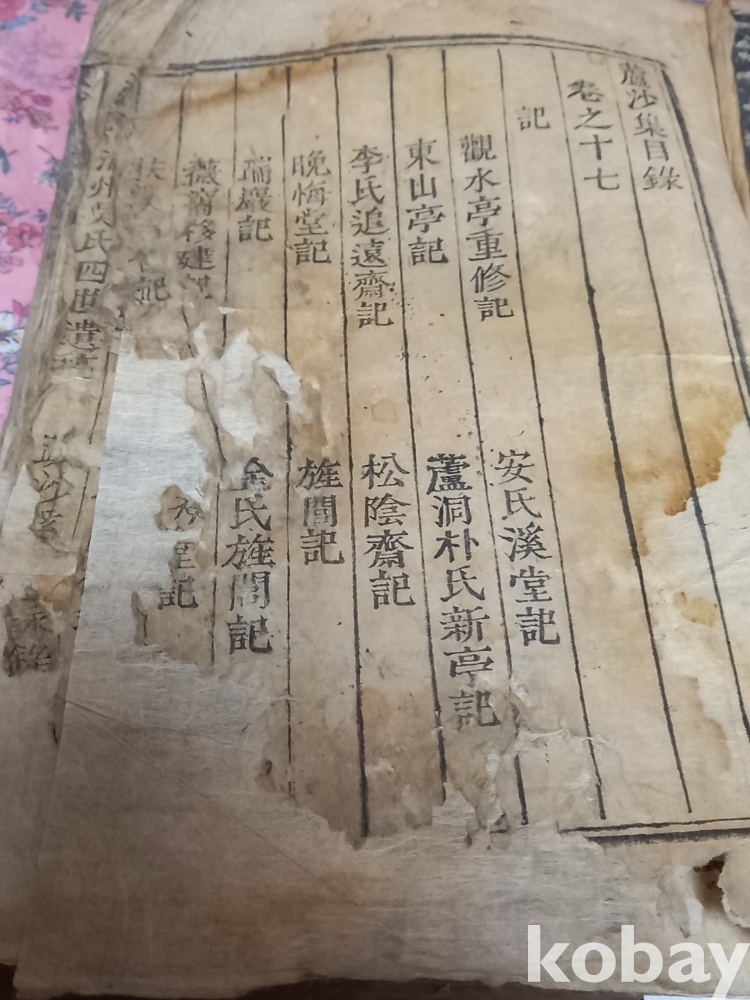 蘆沙集目錄
卷之十七
記
觀水亭重修記
安氏溪堂記
東山亭記
蘆洞朴氏新亭記
李氏追遠齋記
松陰齋記
晩悔堂記
旌閭記
瑞巖記
金氏旌閭記
移建記
記
扶溪
記
州
氏四世遺
kobay